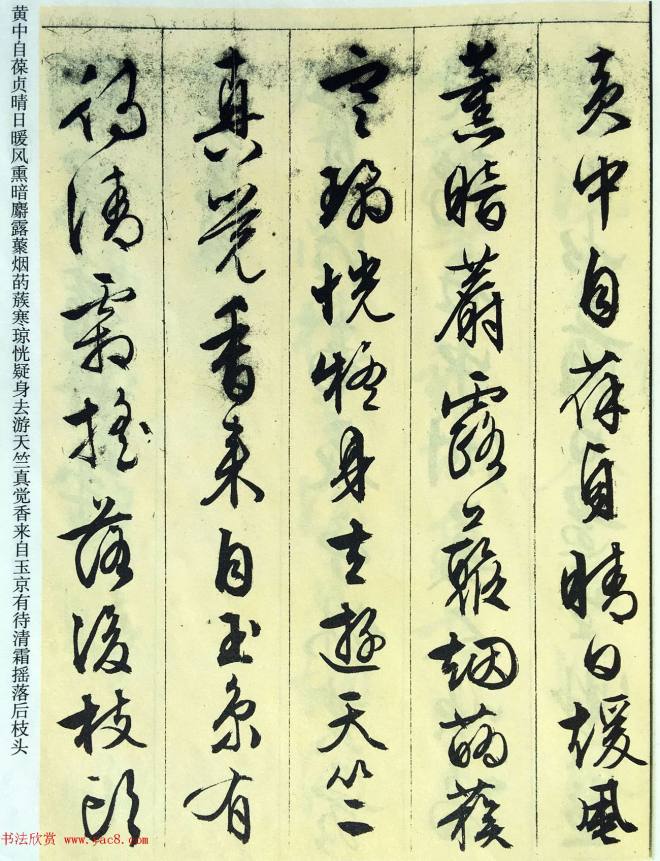 黄中自葆貞晴日煖風
薰暗麝露蘂烟葯蔟
寒瓊恍疑身去遊天竺
真覺香来自玉京有
待清霜搖落後枝頭
黄中自葆贞晴日暖风熏暗麝露蘂烟药蔟寒琼恍疑身去游天竺真觉香来自玉京有待清霜摇落后枝头
书法欣赏 www.yac8.com